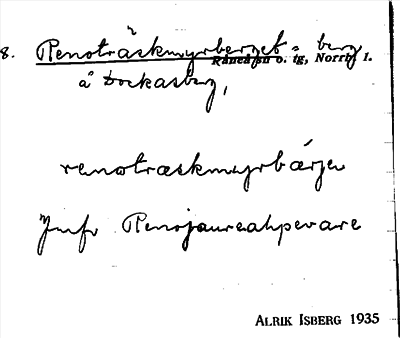 8. Renoträskmyrberget = berg
Råneå sn o. tg, Norrb. l.
å Dockasberg,
renotræskmyrbærje
Jmfr Renojaureahpevare
ALRIK ISBERG 1935